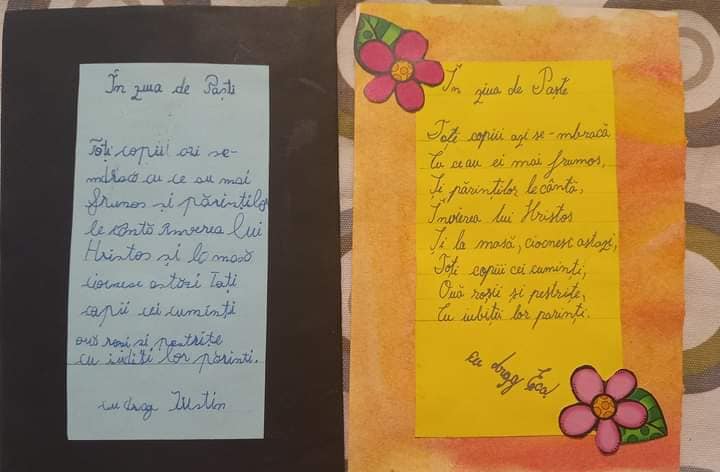 În ziua de Paști
Toți copiii azi se-
mbracă cu ce au mai
frumos și părinților
le cântă Învierea lui
Hristos și la masă
ciocnesc astăzi Toți
copii cei cuminți
ouă rosi si pestrite
cu iubiți lor părinti.
cu drag Iustin
În ziua de Paște
Toți copiii azi se-mbracă
Cu ce au ei mai frumos,
Și părinților le cântă,
Învierea lui Hristos
Și la masă, ciocnesc astazi,
Toți copiii cei cuminți,
Ouă roșii si pestrițe,
Cu iubitii lor parinți.
cu drag